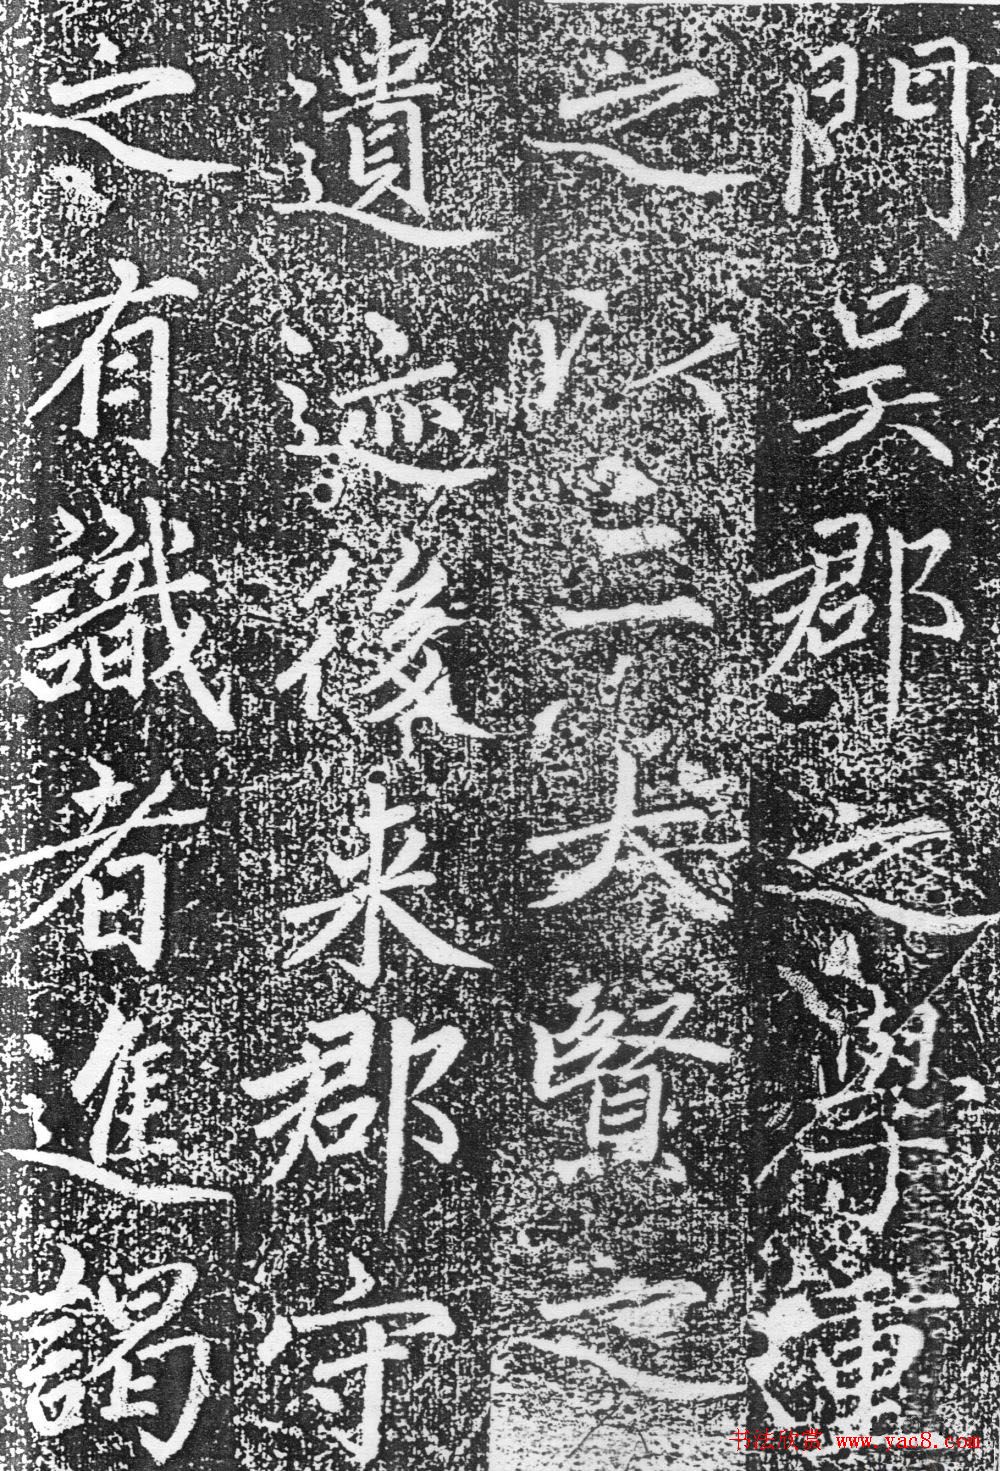 門吳郡之學重
之以二大賢之
遺迹後來郡守
之有識者進謁
书法欣赏 www.yac8.com